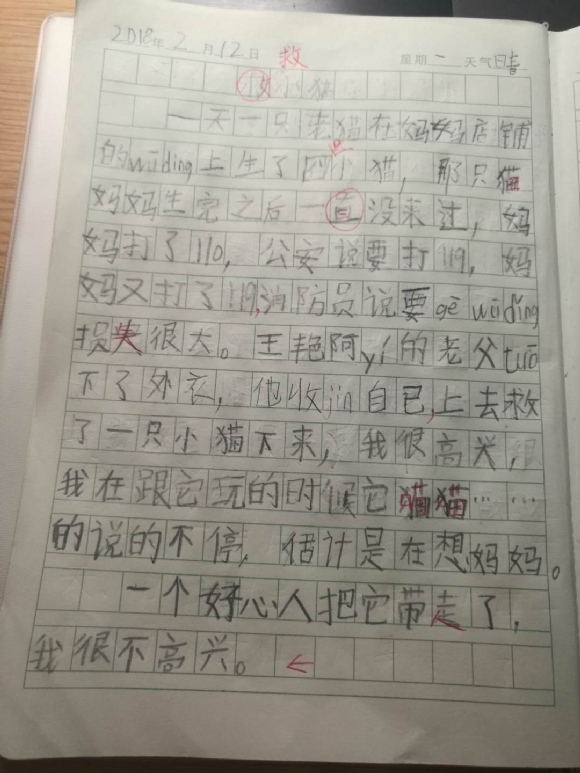 2018年2月12日 星期一 天气晴
救
小猫
一天一只来猫在妈妈店铺
的wūdǐng上生了四小猫，那只猫
妈妈生完之后一直没来过，妈
妈打了110，公安说要打119，妈
妈又打了119，消防员说要gē wūdǐng
损失很大。王艳阿yí的老父tuō
下了外衣，他收jǐn自己，上去救
了一只小猫下来，我很高兴，
我在跟它玩的时候它猫猫……
的说的不停，估计是在想妈妈。
一个好心人把它带走了，
我很不高兴。